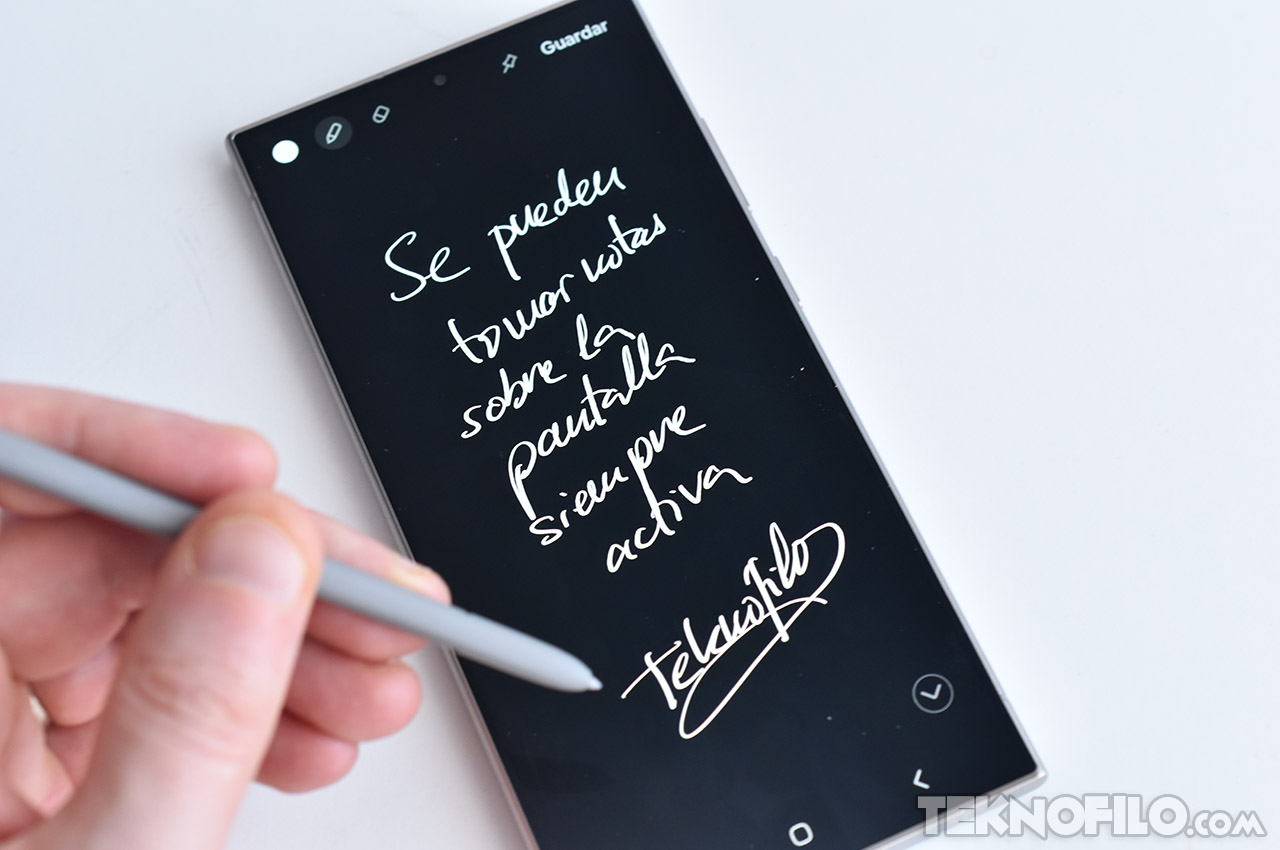 Guardar
Se pueden
tomar notas
sobre la
pantalla
siempre
activa
Teknofilo
TEKNOFILO.com